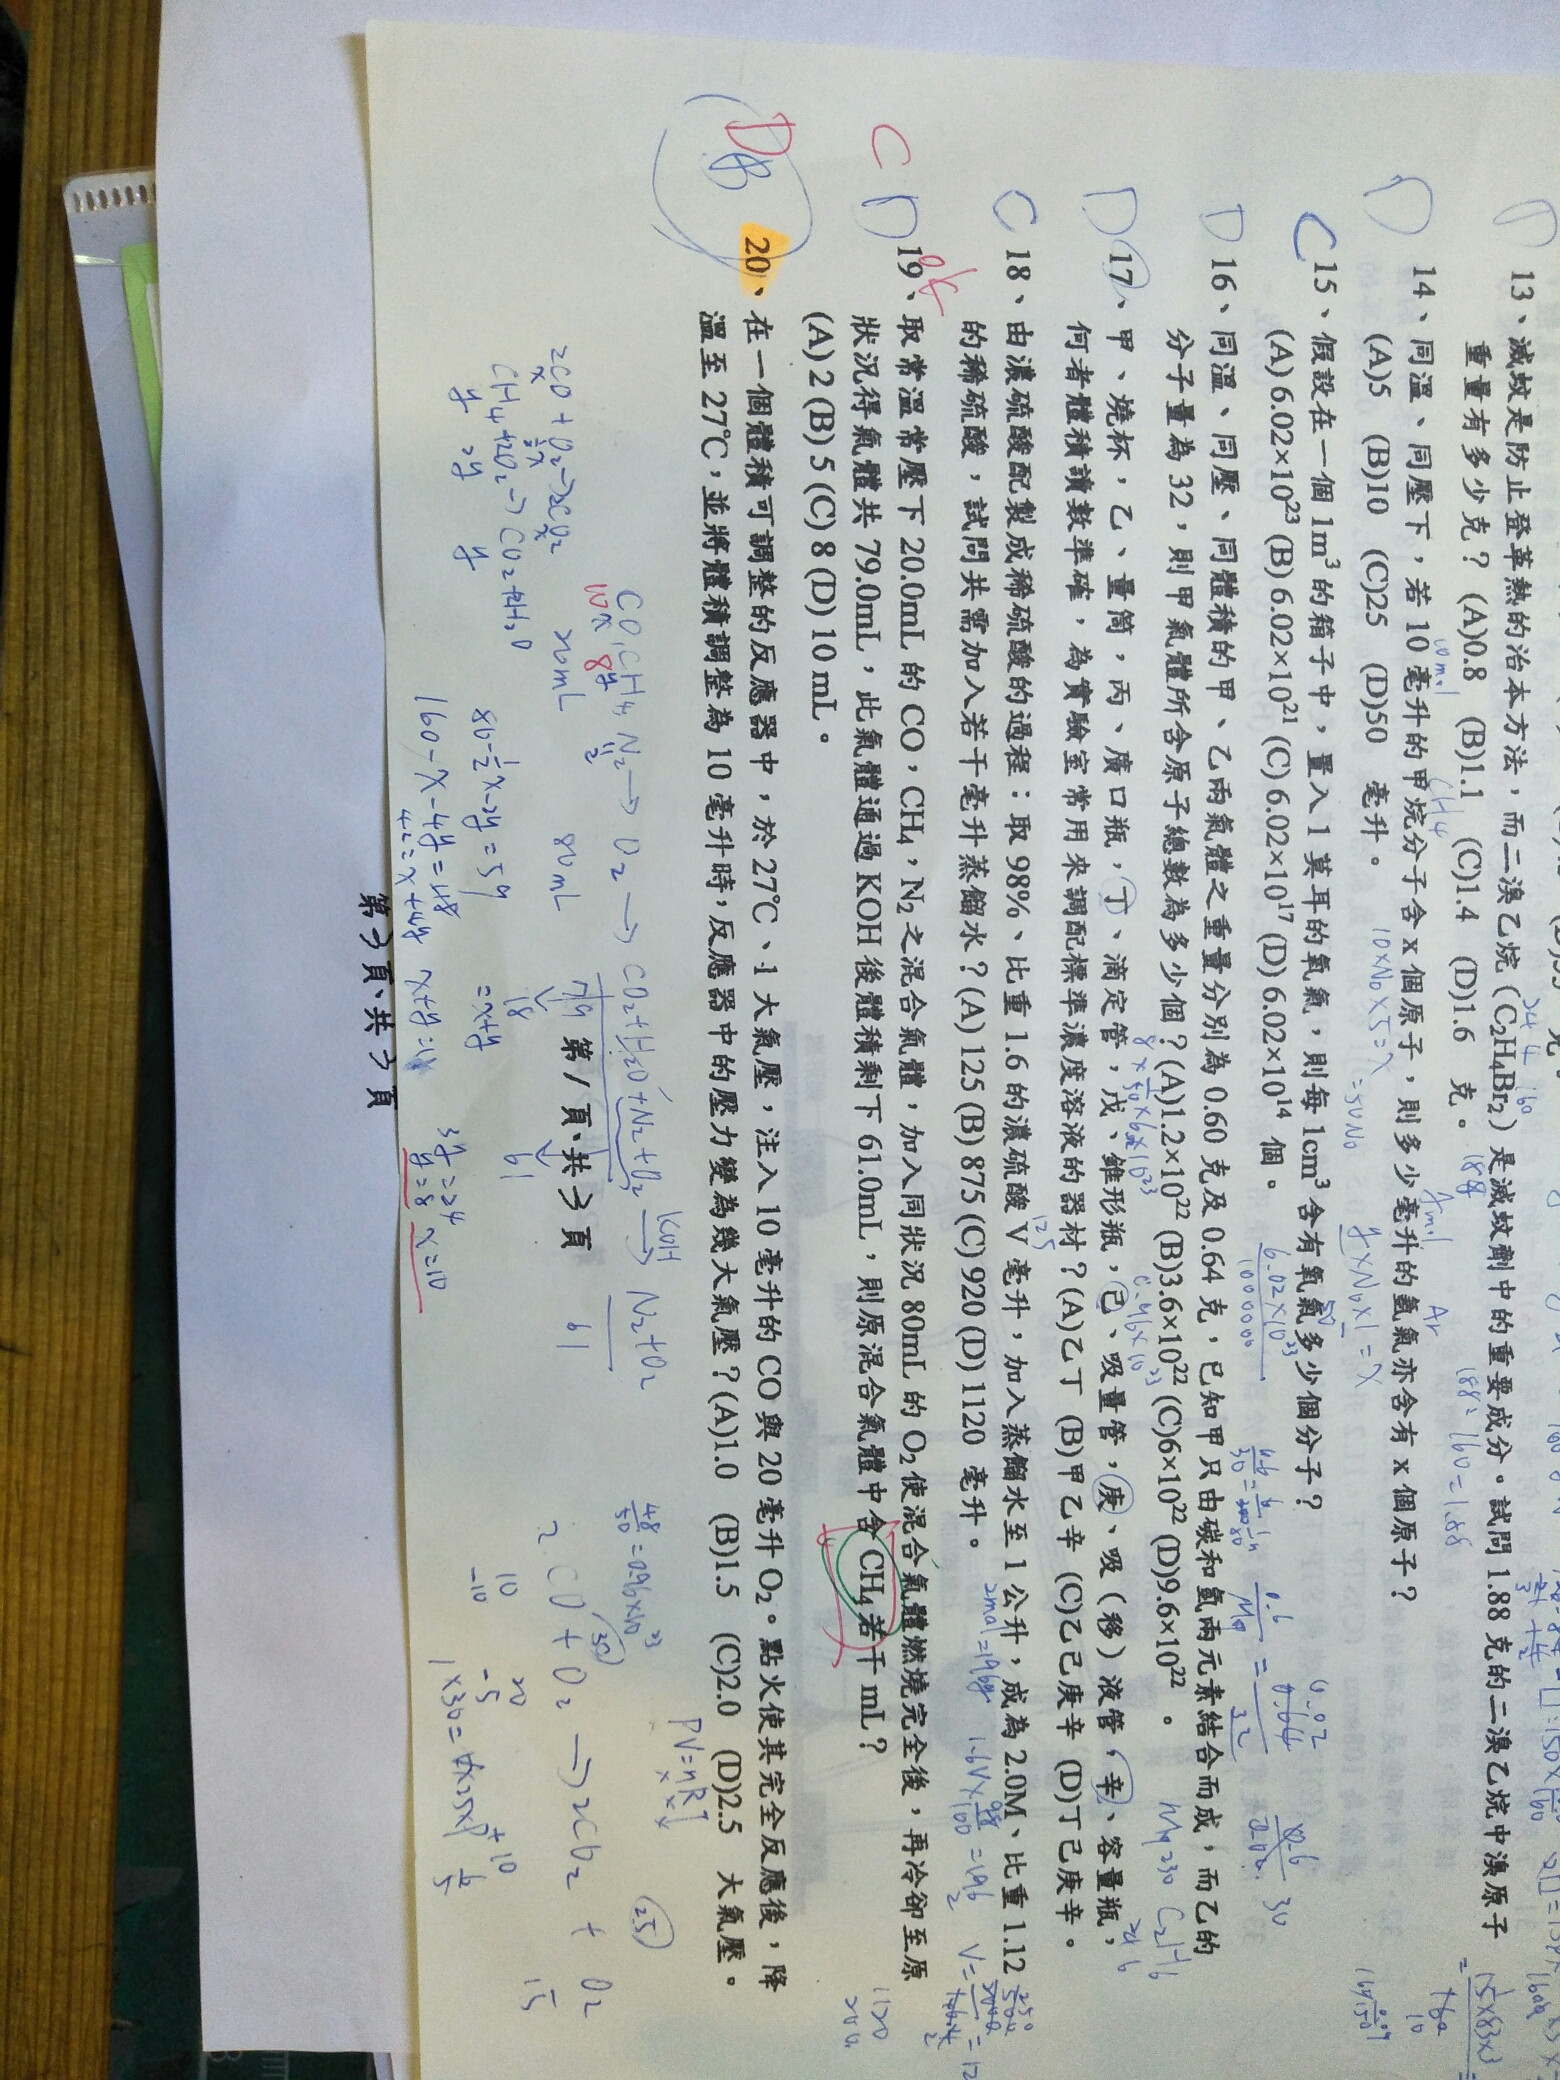 13、滅蚊是防止登革熱的治本方法,而二溴乙烷(C₂H₄Br₂)是滅蚊劑中的重要成分。試問1.88克的二溴乙烷中溴原子
重量有多少克?(A)0.8 (B)1.1 (C)1.4 (D)1.6 克。
D
14、同溫、同壓下,若10毫升的甲烷分子含x個原子,則多少毫升的氬氣亦含有x個原子?
(A)5 (B)10 (C)25 (D)50 毫升。
C
15、假設在一個1m³的箱子中,置入1莫耳的氧氣,則每1cm³含有氧氣多少個分子?
(A) 6.02×10²³ (B) 6.02×10²¹ (C) 6.02×10¹⁷ (D) 6.02×10¹⁴ 個。
D
16、同溫、同壓、同體積的甲、乙兩氣體之重量分別為0.60克及0.64克,已知甲只由碳和氫兩元素結合而成,而乙的
分子量為32,則甲氣體所含原子總數為多少個?(A)1.2×10²² (B)3.6×10²² (C)6×10²² (D)9.6×10²² 。
D
17、甲、燒杯,乙、量筒,丙、廣口瓶,丁、滴定管,戊、錐形瓶,己、吸量管,庚、吸(移)液管,辛、容量瓶,
何者體積讀數準確,為實驗室常用來調配標準濃度溶液的器材?(A)乙丁 (B)甲乙辛 (C)乙己庚辛 (D)丁己庚辛。
C
18、由濃硫酸配製成稀硫酸的過程:取98%、比重1.6的濃硫酸V毫升,加入蒸餾水至1公升,成為2.0M、比重1.12
的稀硫酸,試問共需加入若干毫升蒸餾水?(A) 125 (B) 875 (C) 920 (D) 1120 毫升。
C D
19、取常溫常壓下20.0mL的CO,CH₄,N₂之混合氣體,加入同狀況80mL的O₂使混合氣體燃燒完全後,再冷卻至原
狀況得氣體共79.0mL,此氣體通過KOH後體積剩下61.0mL,則原混合氣體中含CH₄若干mL?
(A) 2 (B) 5 (C) 8 (D) 10 mL。
D B
20、在一個體積可調整的反應器中,於27℃、1大氣壓,注入10毫升的CO與20毫升O₂。點火使其完全反應後,降
溫至27℃,並將體積調整為10毫升時,反應器中的壓力變為幾大氣壓?(A)1.0 (B)1.5 (C)2.0 (D)2.5 大氣壓。
CO, CH₄, N₂ → O₂ → CO₂+H₂O+N₂+O₂ →KOH N₂+O₂
10x 8y 2
20mL 80mL 79 61
18 61
2CO + O₂ → 2CO₂
x ½x x
CH₄+2O₂ → CO₂+2H₂O
y 2y y
80-½x-2y=59
=x+y
160-x-4y=118
42=x+4y
3y=24
y=8 x=10
PV=nRT
2CO + O₂ → 2CO₂ + O₂
10 20
-10 -5 +10 15
25
第1頁、共3頁
第3頁、共3頁